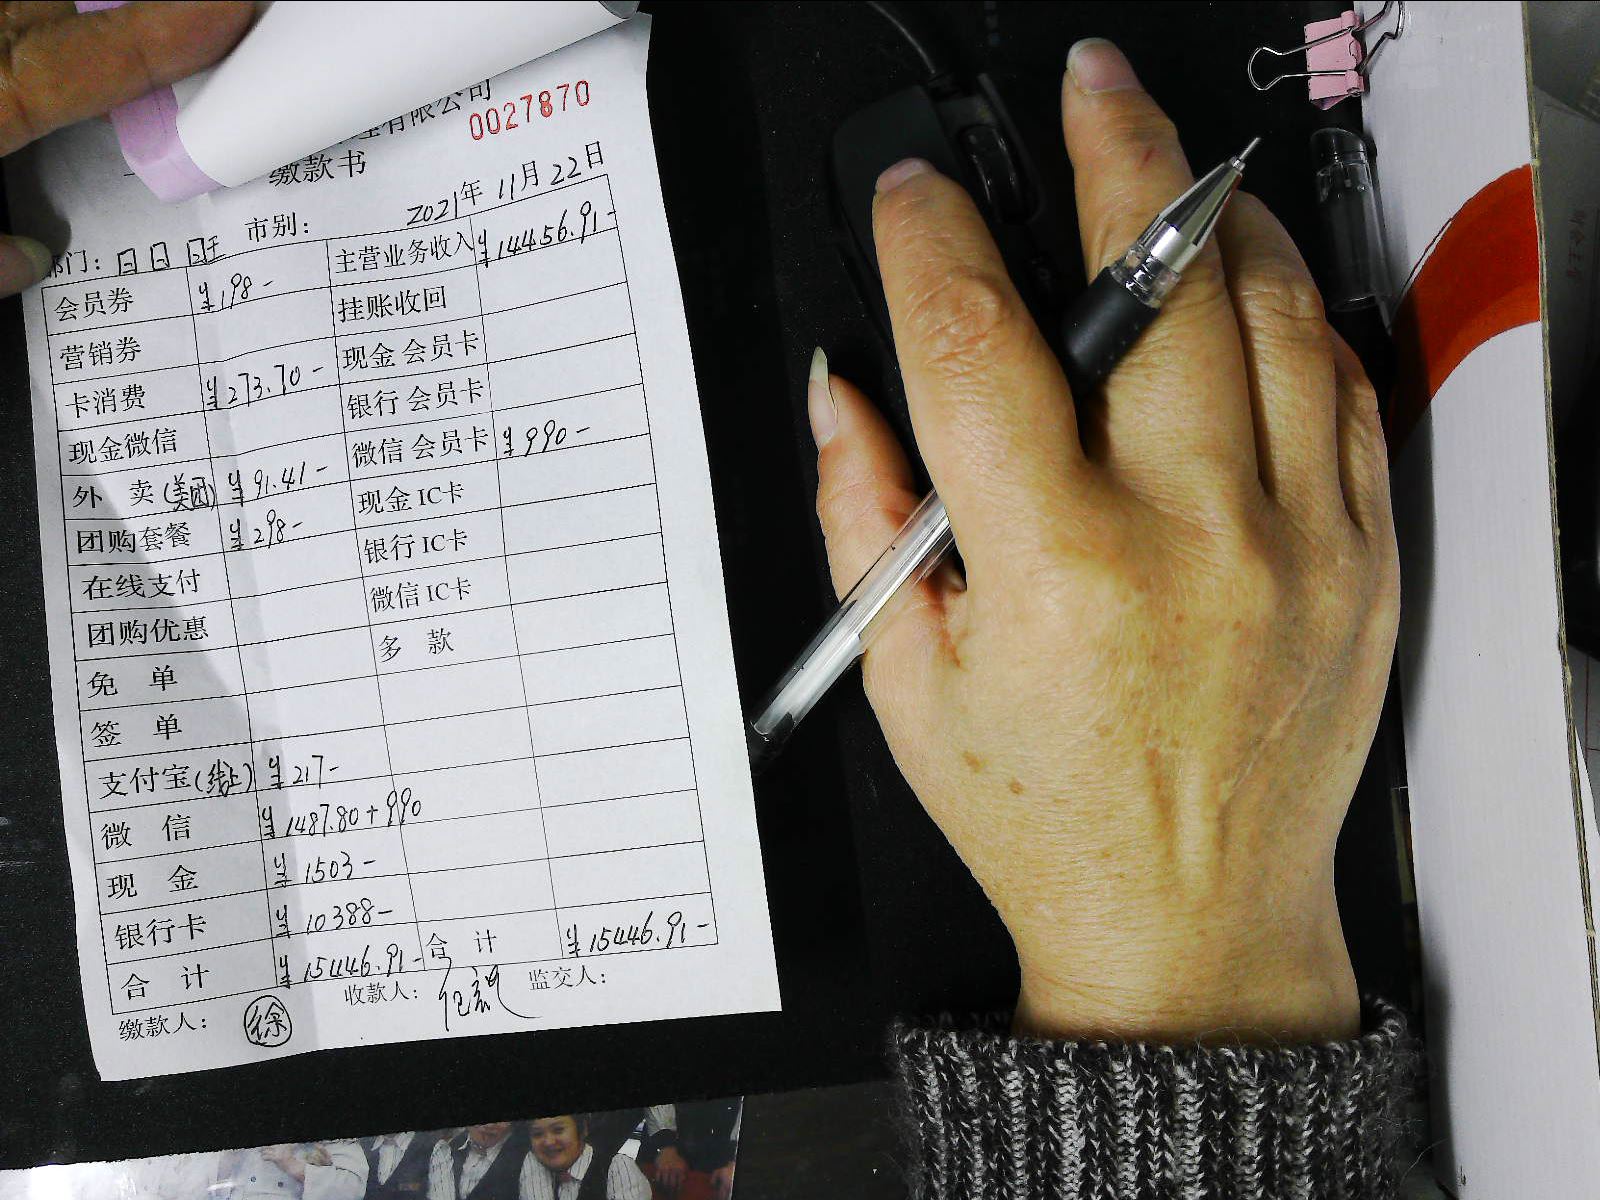 理有限公司
0027870
缴款书
部门： 市别： 2021年 11月 22日
会员券 ¥198- 主营业务收入 ¥14456.91-
营销券 挂账收回
卡消费 ¥273.70- 现金 会员卡
现金微信 银行 会员卡
外 卖(美团) ¥91.41- 微信 会员卡 ¥990-
团购套餐 ¥298- 现金 IC卡
在线支付 银行 IC卡
团购优惠 微信 IC卡
免 单 多 款
签 单
支付宝(线上) ¥217-
微 信 ¥1487.80+990
现 金 ¥1503-
银行卡 ¥10388-
合 计 ¥15446.91- 合 计 ¥15446.91-
缴款人： 徐 收款人： 监交人：